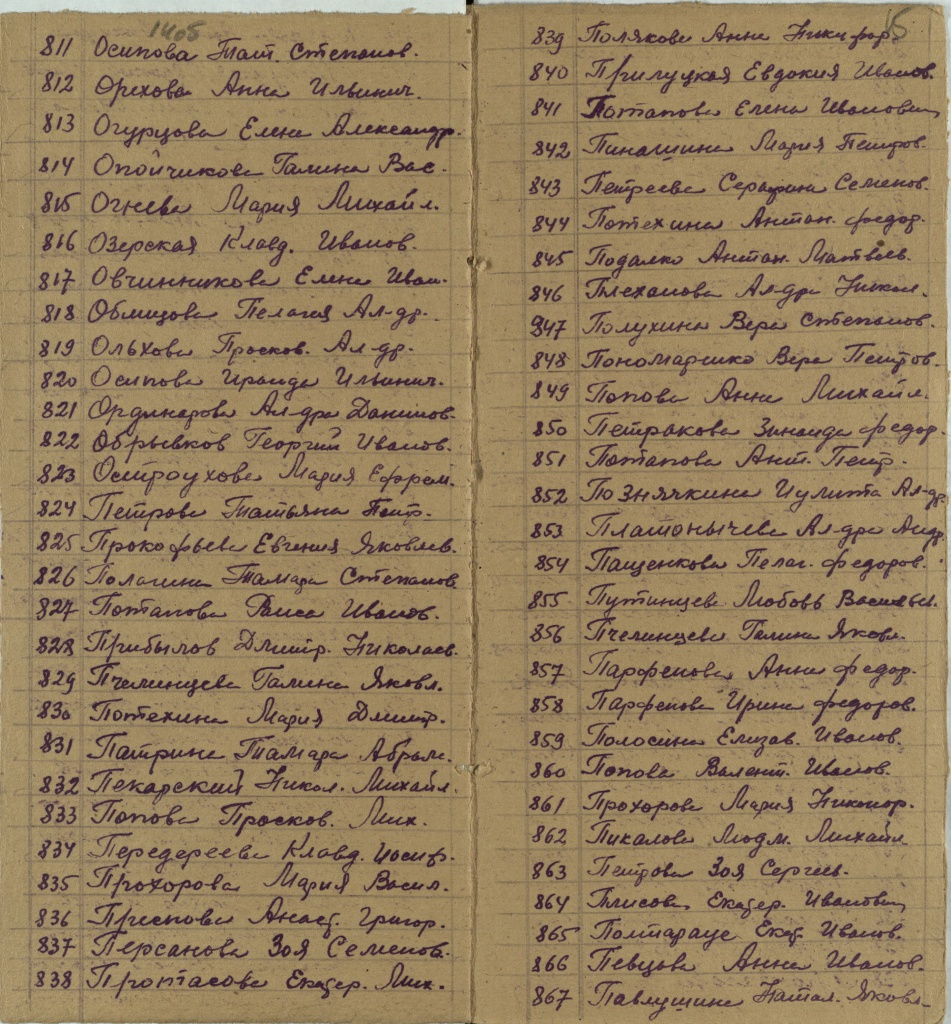 1405
811 Осипова Тат. Степанов.
812 Орехова Анна Ильинич.
813 Огурцова Елена Александр.
814 Опойчикова Галина Вас.
815 Огнева Мария Михайл.
816 Озерская Клавд. Иванов.
817 Овчинникова Елена Иван.
818 Облицова Пелагея Ал-др.
819 Ольхова Просков. Ал-др.
820 Осипова Ираида Ильинич.
821 Ординарова Ал-дра Данилов.
822 Обрывков Георгий Иванов.
823 Остроухова Мария Ефрем.
824 Петрова Татьяна Петр.
825 Прокофьева Евгения Яковлев.
826 Полагина Тамара Степанов.
827 Потапова Раиса Иванов.
828 Прибылов Дмитр. Николаев.
829 Пчелинцева Галина Яковл.
830 Потехина Мария Дмитр.
831 Патрина Тамара Абрам.
832 Пекарский Никол. Михайл.
833 Попова Просков. Мих.
834 Передереева Клавд. Иосиф.
835 Прохорова Мария Васил.
836 Преснова Анаст. Григор.
837 Персанова Зоя Семенов.
838 Протасова Екатер. Мих.
15
839 Полякова Анна Никифор.
840 Прилуцкая Евдокия Иванов.
841 Потапова Елена Иванович
842 Пинашина Мария Петров.
843 Петреева Серафина Семенов.
844 Потехина Антон. Федор.
845 Подалко Антон. Матвеев.
846 Плеханова Ал-дра Никол.
847 Полухина Вера Степанов.
848 Пономаренко Вера Петров.
849 Попова Анна Михайл.
850 Петракова Зинаида Федор.
851 Потапова Ант. Петр.
852 Познячкина Иулита Ал-др.
853 Платонычева Ал-дра Андр.
854 Пащенкова Пелаг. Федоров.
855 Путинцева Любовь Васильев.
856 Пчелинцева Галина Яковл.
857 Парфенова Анна Федор.
858 Парфенова Ирина Федоров.
859 Полосина Елизав. Иванов.
860 Попова Валент. Иванов.
861 Прохорова Мария Никонор.
862 Пикалова Людм. Михайл
863 Петрова Зоя Сергеев.
864 Плисова Екатер. Иванович
865 Полтараце Екат. Иванов.
866 Певцова Анна Иванов.
867 Павлушина Натал. Яковл.